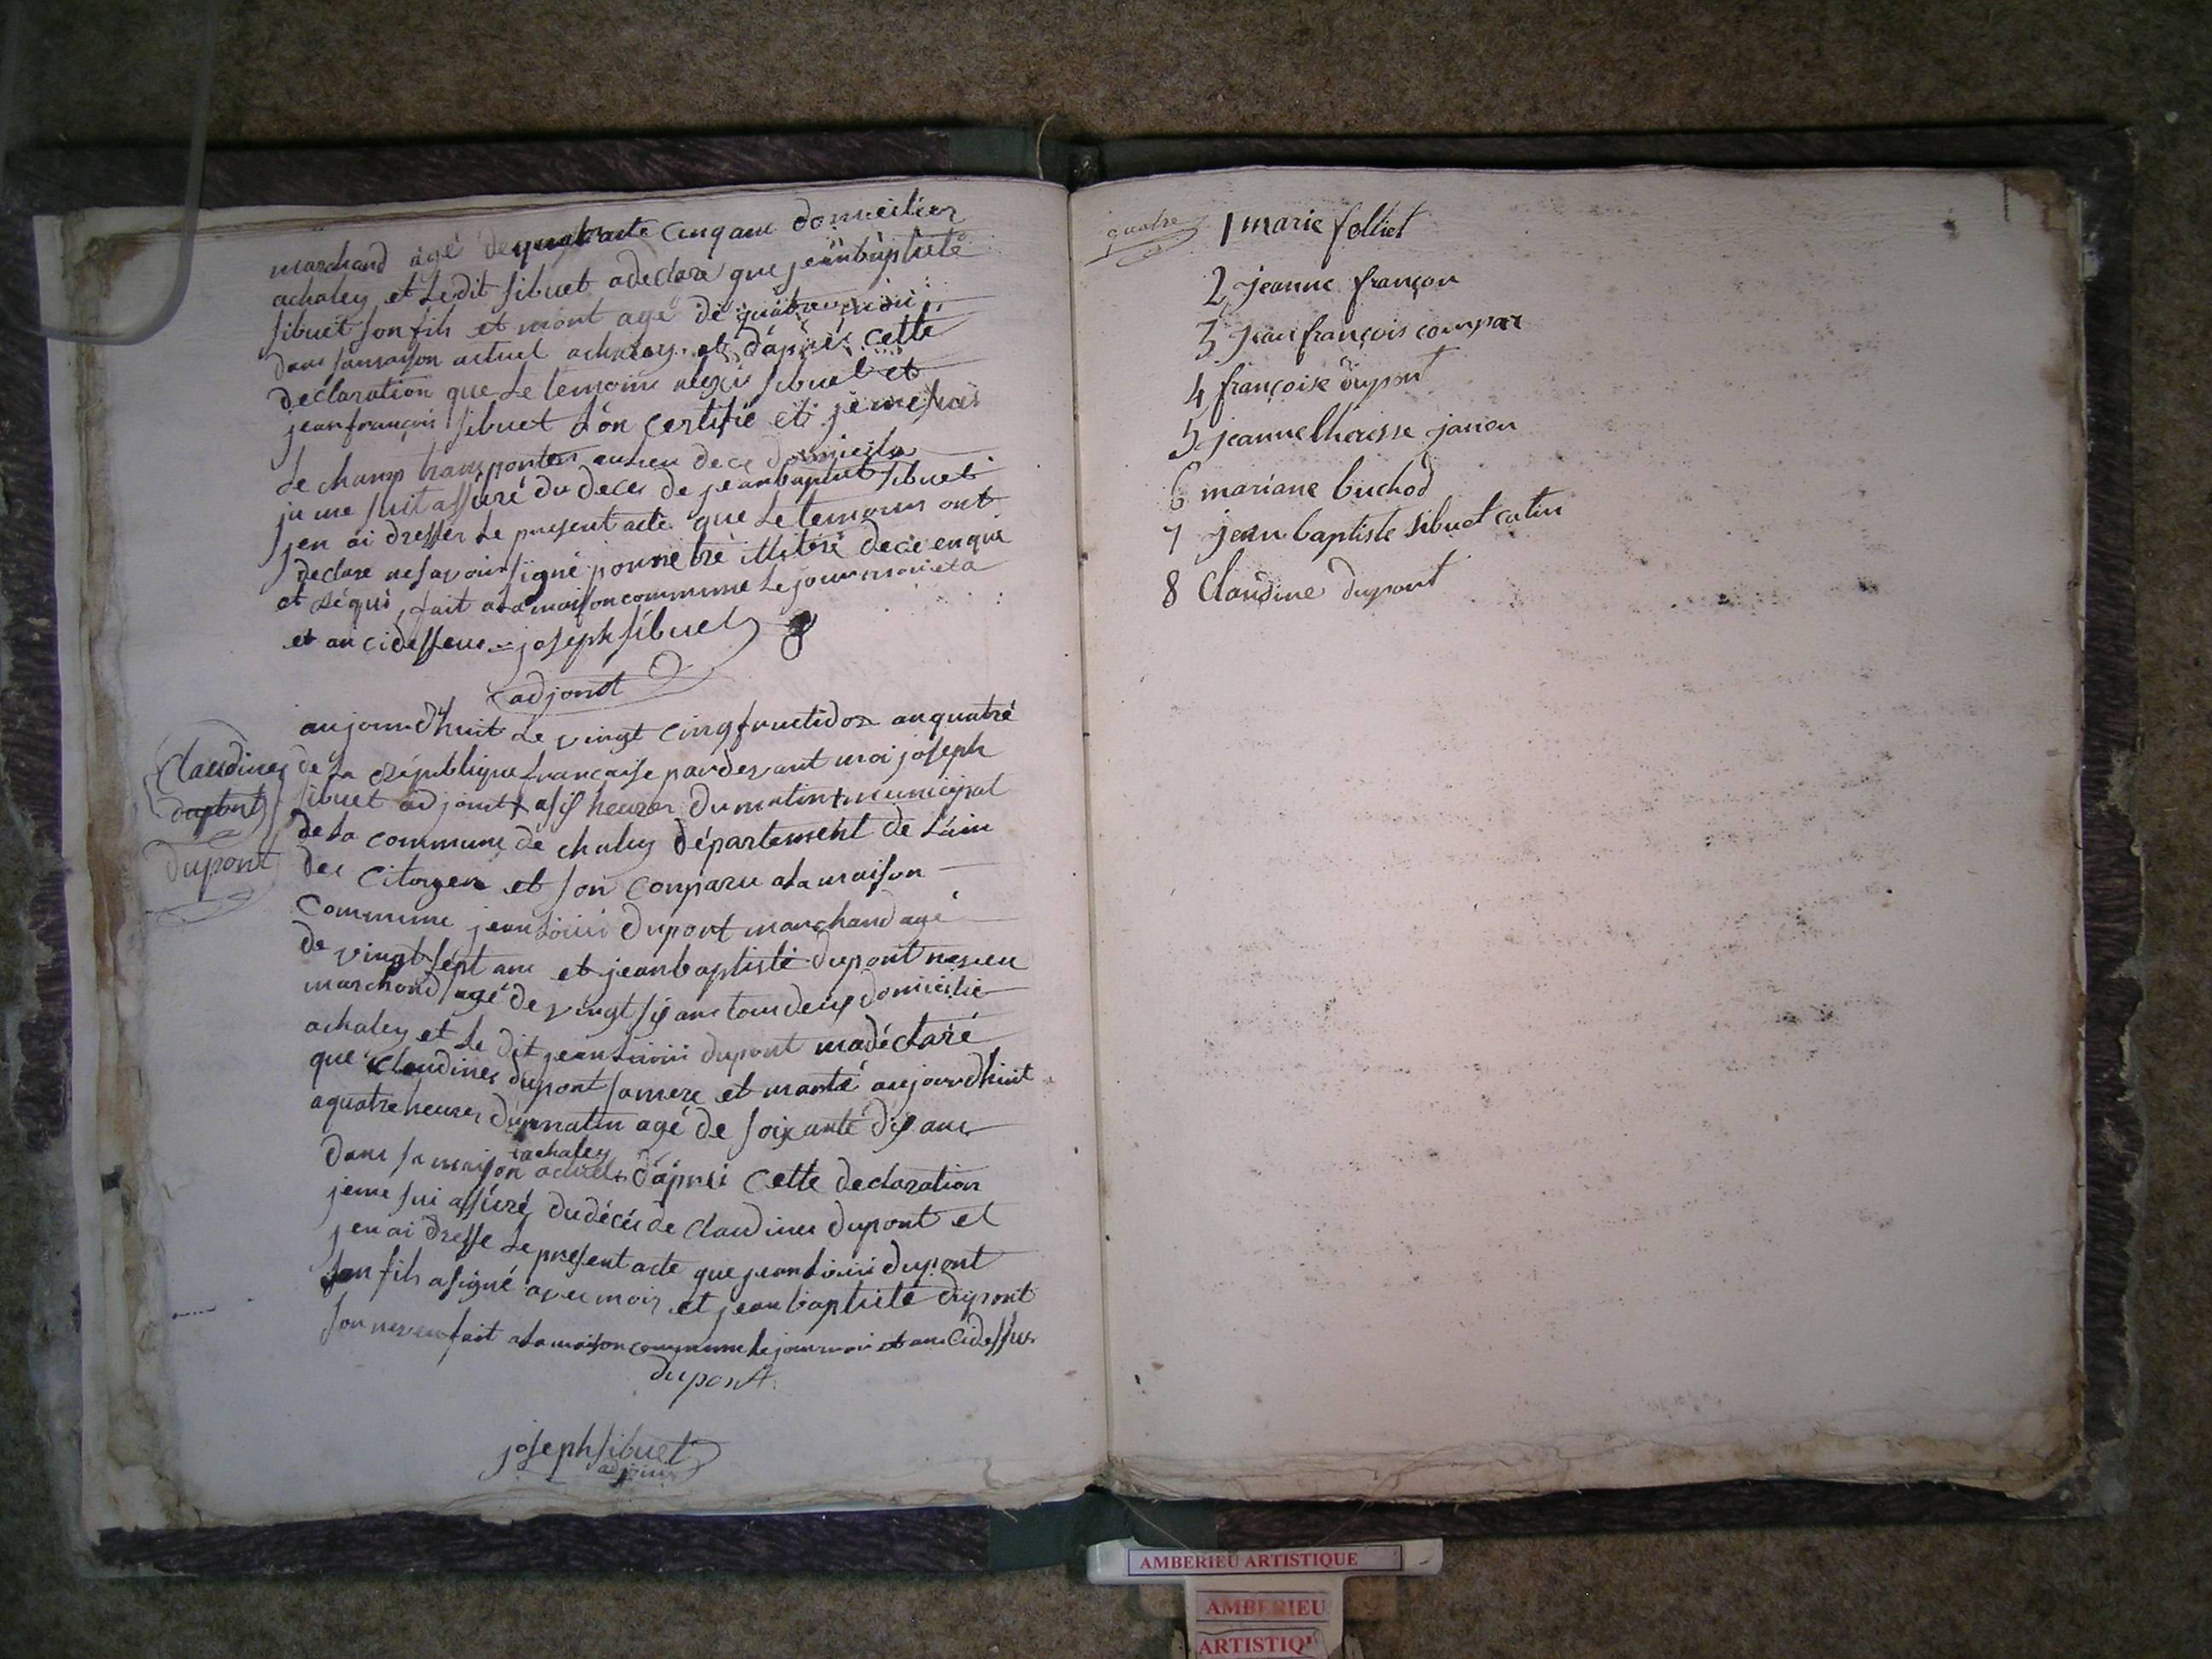 marchand agé de quarante cinq ans domicilier
achaley et Ledit sibuet adeclare que jeanbaptiste
sibuet son fils et mort agé de quatre moi
dans samaison actuel achaley et d'aprés cette
declaration que Le temoins alexis sibuet et
jean françois sibuet L'on certifie et je me suis
Le champ transporter au Lieu de ce domicile
je me suit assuré du deces de jean baptiste sibuet
jen ai dresser Le present acte que Le temoins ont
declare ne savoir signé pour n'etré illitéré de ce enquis
et réqui, fait a La maison commune Le jour moi et a
et an ci dessus = joseph sibuet
adjoint
aujourd'huit Le vingt cinq fructidor an quatré
Claudines
dupont
dupont
de La République francaise pardevant moi joseph
sibuet adjoint + a six heures du matin + municipal
de La commune de chaley département de L'ain
des citoyen et son conparu a La maison
commune jean Loüis dupont marchand agé
de vingt sept ans et jean baptiste dupont neveu
marchand agé de vingt six ans tous deux domicilie
achaley et Le dit jean Louis dupont ma déclaré
que Claudines dupont samere et morte aujourdhuit
aquatre heures du matin agé de soixante dix ans
+ achaley
dans sa maison actuel + d'aprés cette declaration
jeme sui assuré du décés de claudines dupont et
jen ai dresse Le present acte que jean Louis dupont
son fils a signé avec moi et jean baptiste dupont
son neveu fait a La maison commune Le jour moi et an ci dessus
dupont
joseph sibuet
adjoint
quatre
1 marie folliet
2 jeanne françon
3 jean françois compar
4 françoise dupont
5 jeanne theresse janen
6 mariane buchod
7 jean baptiste sibuet catin
8 Claudine dupont
AMBERIEU ARTISTIQUE
AMBERIEU
ARTISTIQU